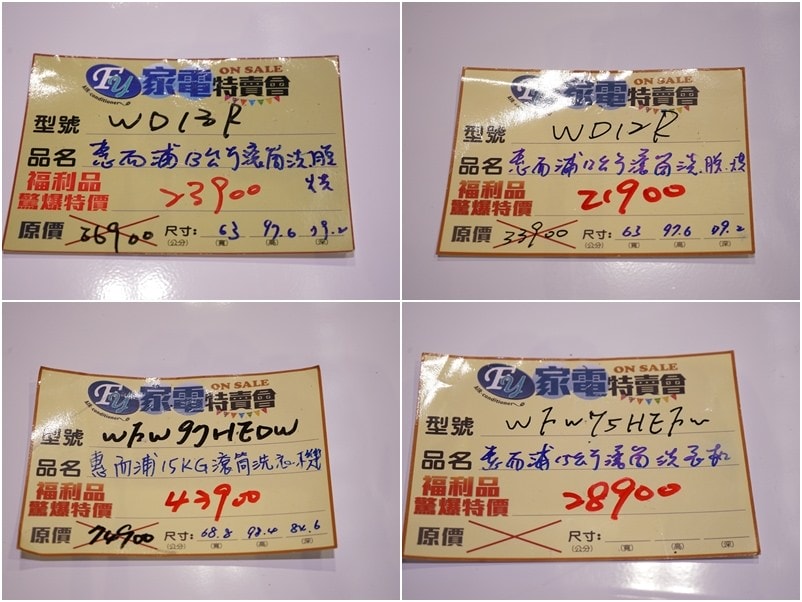 FY 家電 ON SALE 特賣會
Air conditioner
型號 WD13R
品名 惠而浦13公斤滾筒洗脫
烘
福利品
驚爆特價 23900
原價 26900 尺寸: 63 97.6 79.2
(公分) (寬) (高) (深)
家電 ON SALE 特賣會
Air conditioner
型號 WD12R
品名 惠而浦12公斤滾筒洗.脫.烘
福利品
驚爆特價 21900
原價 33900 尺寸: 63 97.6 79.2
(公分) (寬) (高) (深)
FY 家電 ON SALE 特賣會
Air conditioner
型號 WFW97HEDW
品名 惠而浦15KG滾筒洗衣機
福利品
驚爆特價 43900
原價 74900 尺寸: 68.8 98.4 84.6
(公分) (寬) (高) (深)
FY 家電 ON SALE 特賣會
Air conditioner
型號 WFW75HEFW
品名 惠而浦15公斤滾筒洗衣機
福利品
驚爆特價 28900
原價 尺寸:
(公分) (寬) (高) (深)